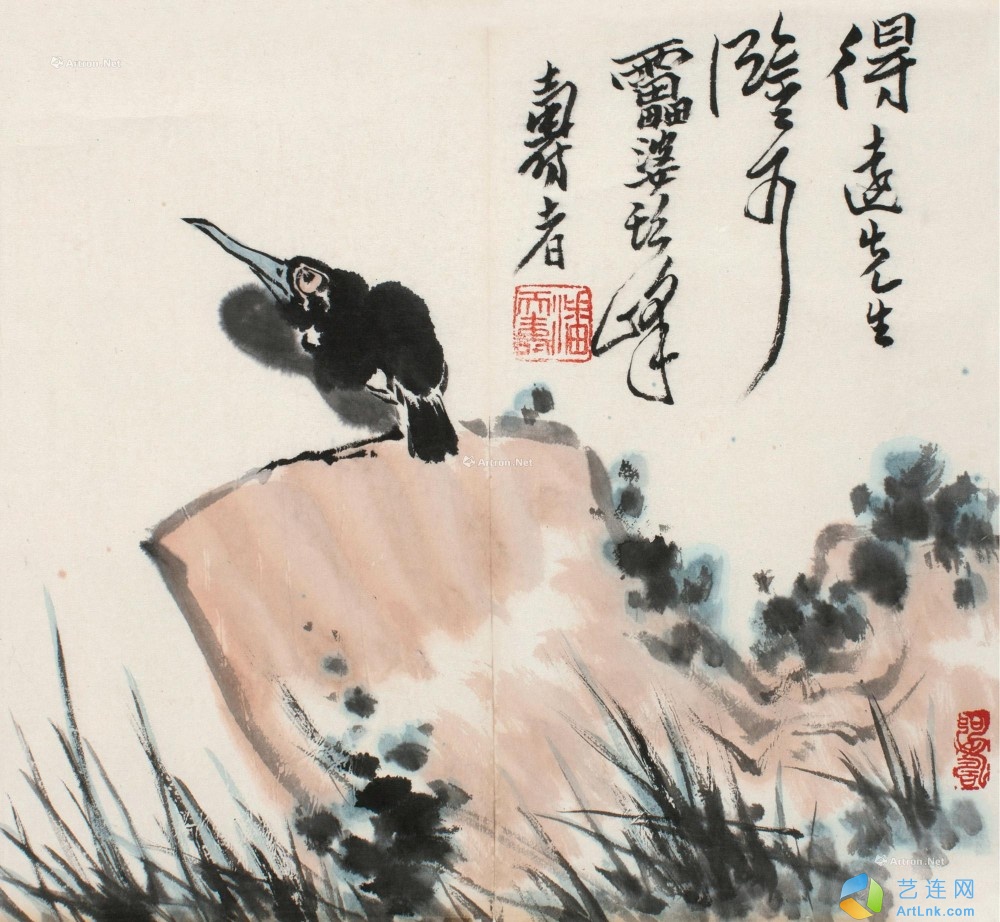 得遠先生
靁婆頭峰
壽者
潘天壽
Artron.Net
Artron.Net
Artron.Net
艺连网
ArtLnk.com